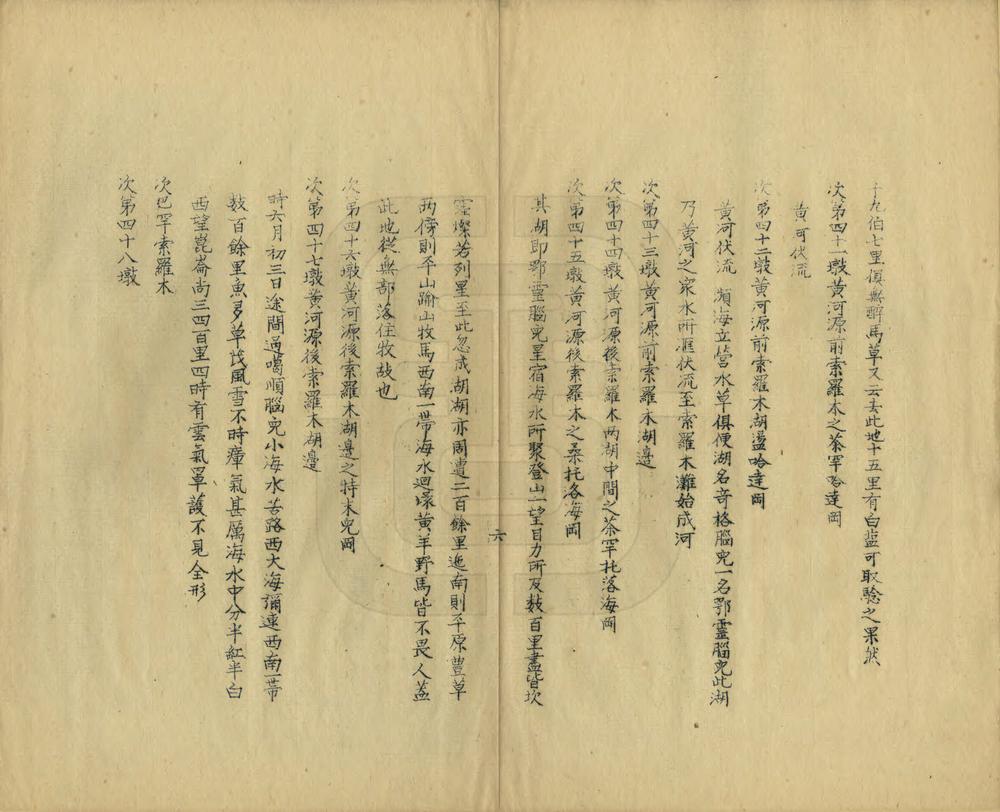 十九伯七里俱無醉馬草又云去此地十五里有白盐可取驗之果然
次第四十一墩黃河源前索羅木之荼罕哈達岡
黃河伏流
次第四十二墩黃河源前索羅木湖邊哈達岡
黃河伏流 瀕海立營水草俱便湖名竒格腦兒一名鄂靈腦兒此湖
乃黃河之衆水所滙伏流至索羅木灘始成河
次第四十三墩黃河源前索羅木湖邊
次第四十四墩黃河源後索羅木两湖中間之荼罕托落海岡
次第四十五墩黃河源後索羅木之桑托洛海岡
其湖即鄂靈腦兒星宿海水所聚登山一望目力所及数百里盡皆坎
六
窞燦若列星至此忽成湖湖亦周遭二百餘里迤南則平原豊草
两傍則平山踰山牧馬西南一帶海水迴环黃羊野馬皆不畏人蓋
此地從無部落住牧故也
次第四十六墩黃河源後索羅木湖邊之特木兒岡
次第四十七墩黃河源後索羅木胡邊
時六月初三日途間過噶順腦兒小海水苦路西大海彌連西南一帶
数百餘里魚多草茂風雪不時瘴氣甚厲海水中分半紅半白
西望崑崙尚三四百里四時有雲氣罩護不見全形
次巴罕索羅木
次第四十八墩